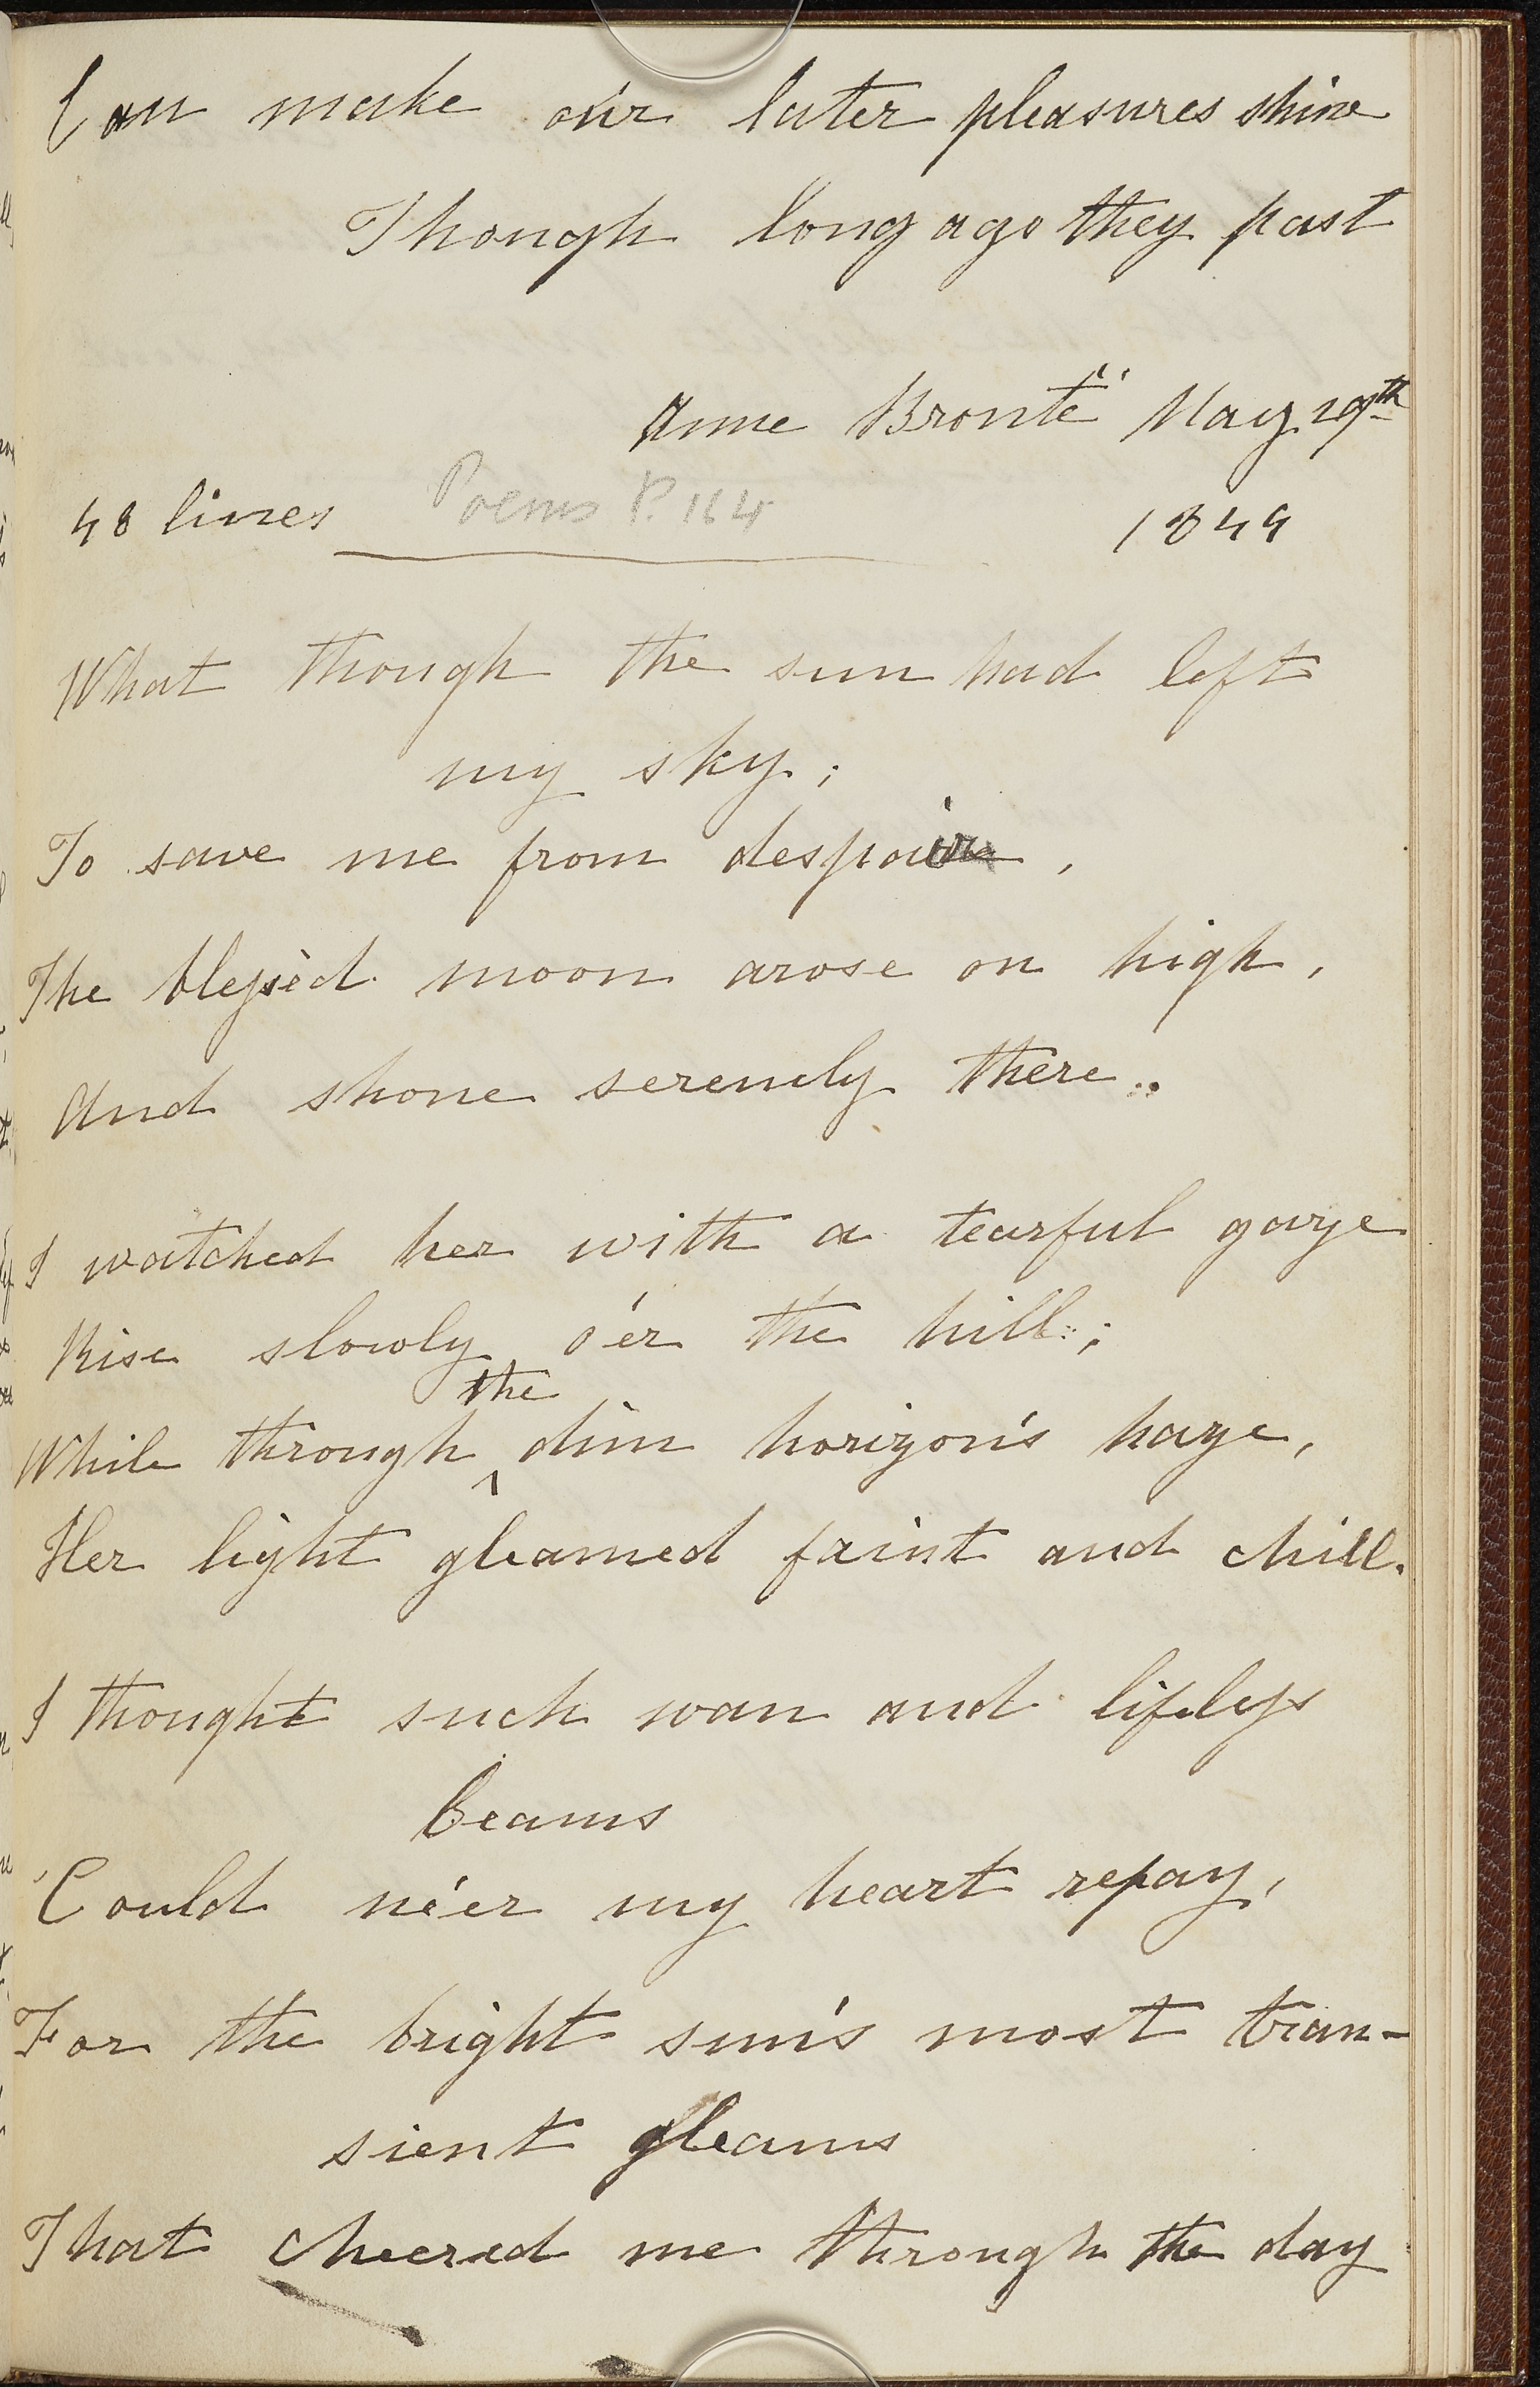 Can make our later pleasures shine
Though long ago they past
Anne Brontë May 29th
48 lines Poems P. 164 1844
What though the sun had left
my sky;
To save me from despair,
The blessèd moon arose on high,
And shone serenely there.
I watched her with a tearful gaze
Rise slowly o'er the hill;
While through the dim horizon's haze,
Her light gleamed faint and chill.
I thought such wan and lifeless
beams
Could ne'er my heart repay,
For the bright sun's most tran-
sient gleams
That cheered me through the day